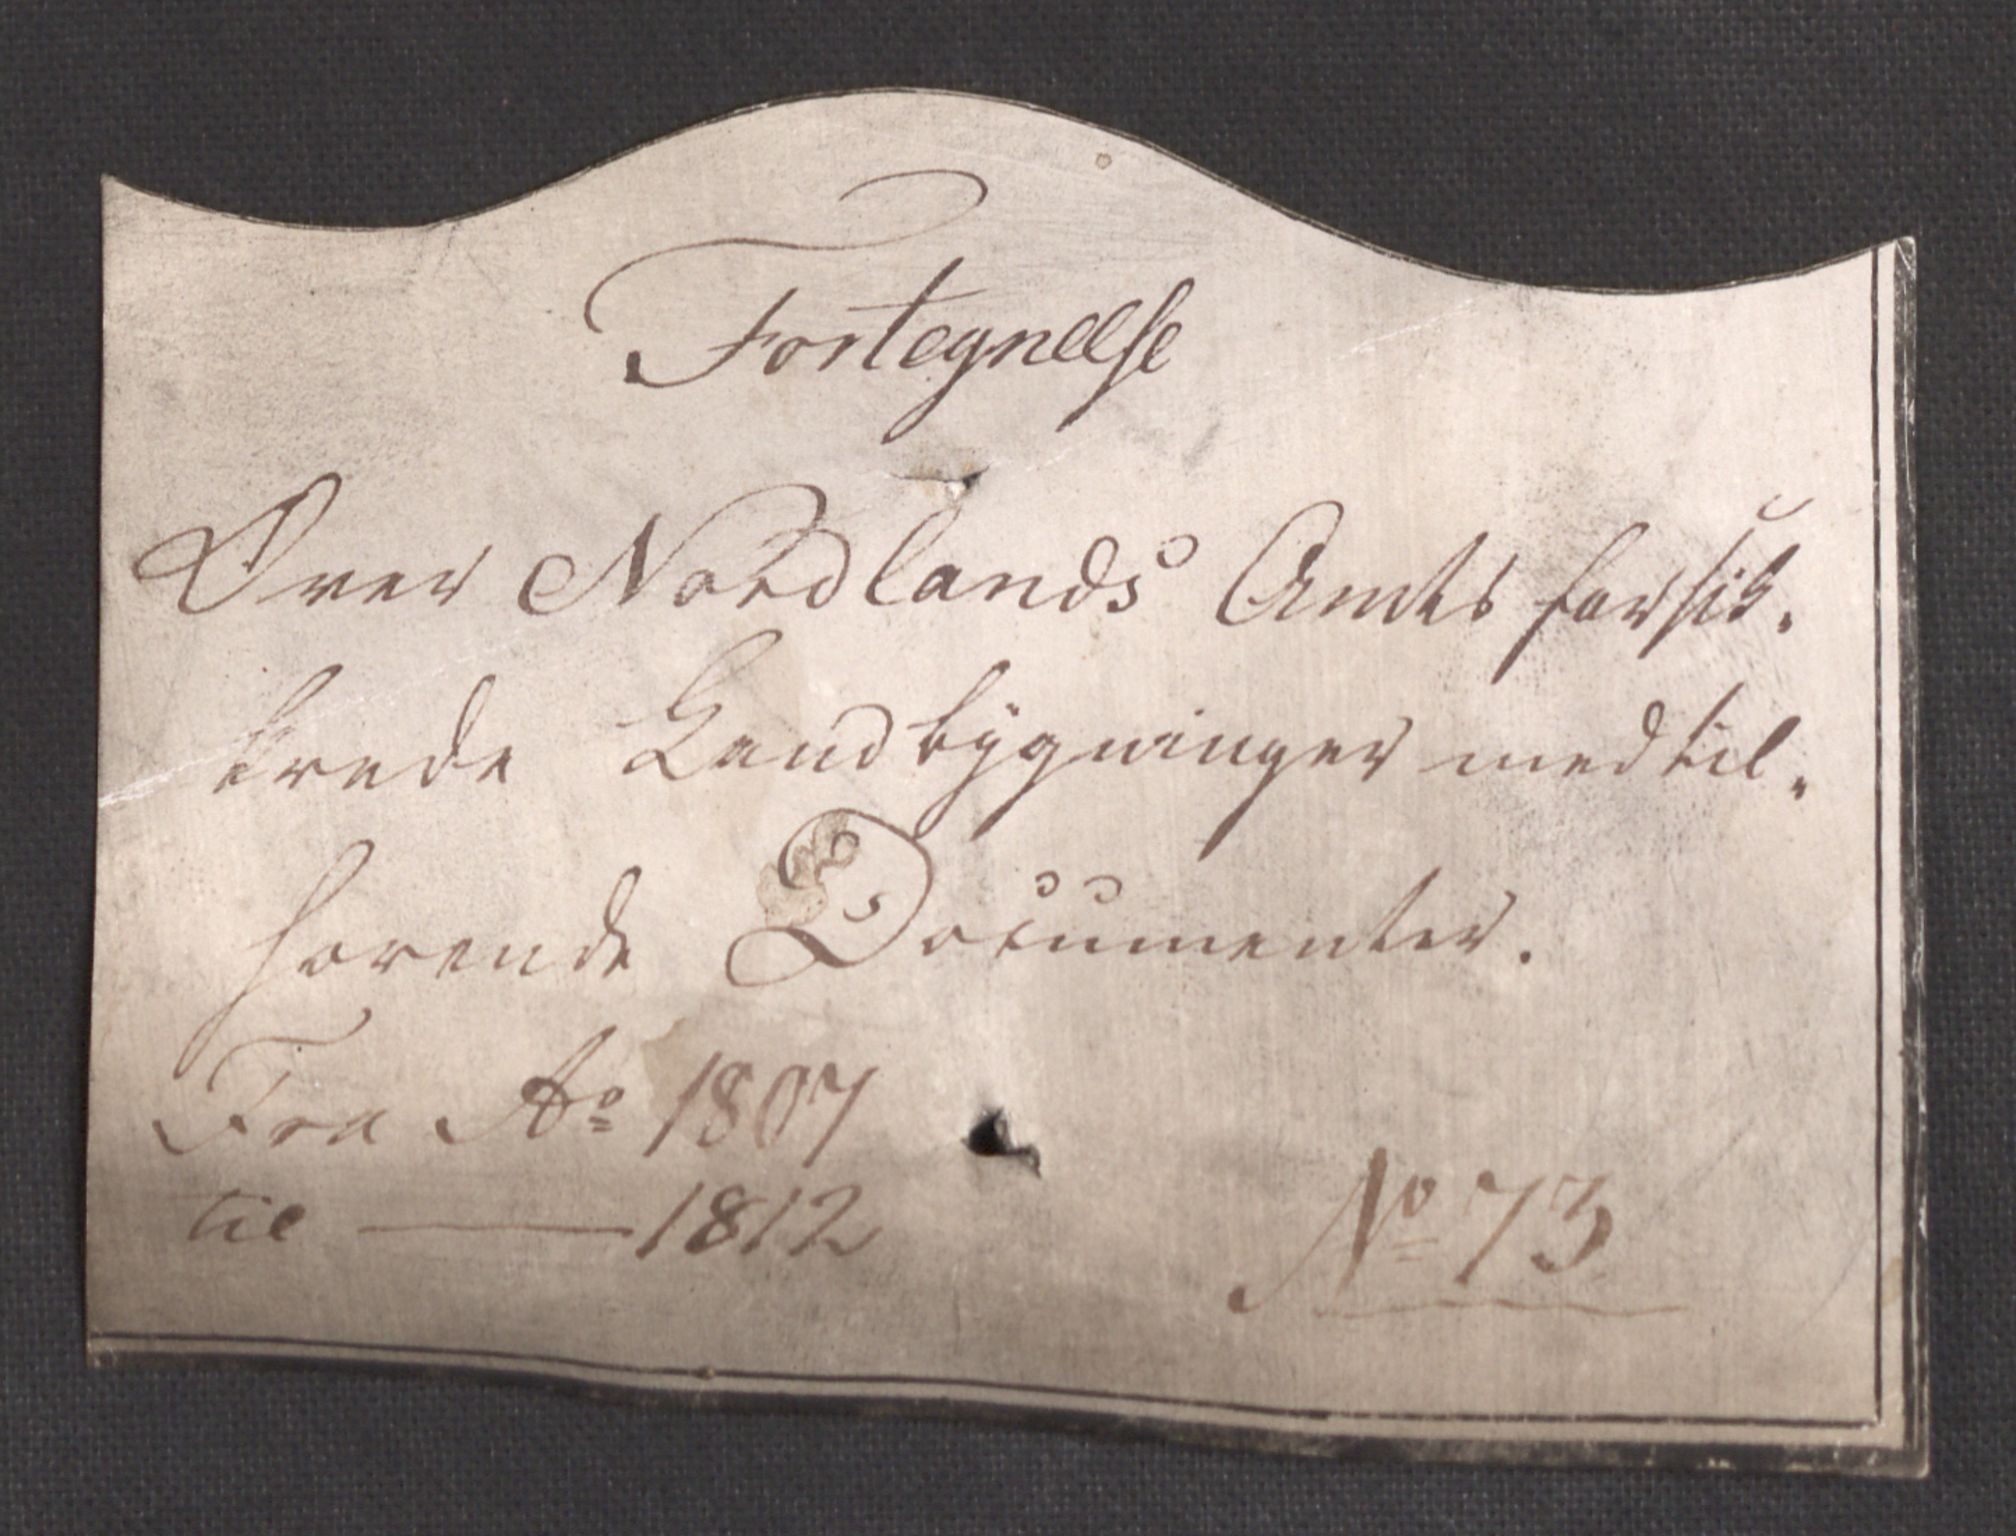 Fortegnelse
Over Nordlands Amts forsik-
krede Landbygninger med til-
hørende Documenter.
Fra Ao 1807
til — 1812
No 73